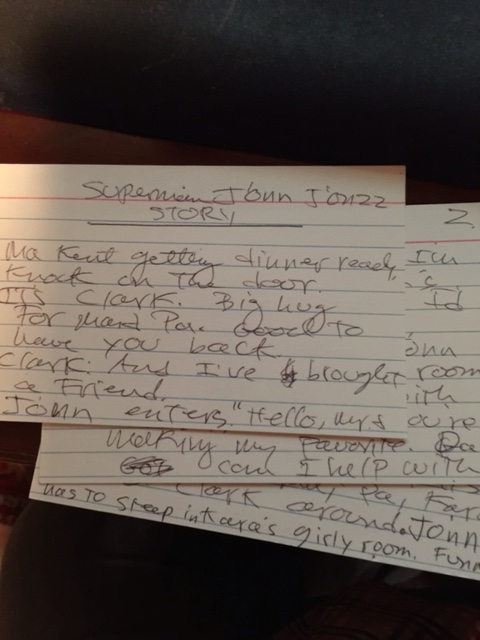 Superman John Jonzz
STORY
Ma Kent getting dinner ready.
Knock on the door.
ITS Clark. Big hug
For Ma and Pa. Good TO
have you back
Clark. And I've brought
a Friend.
John enters. "Hello, Mrs
2.
I'm
Id
room
making my favorite.
can I help with
Clark around. John
has to sleep in Kara's girly room.